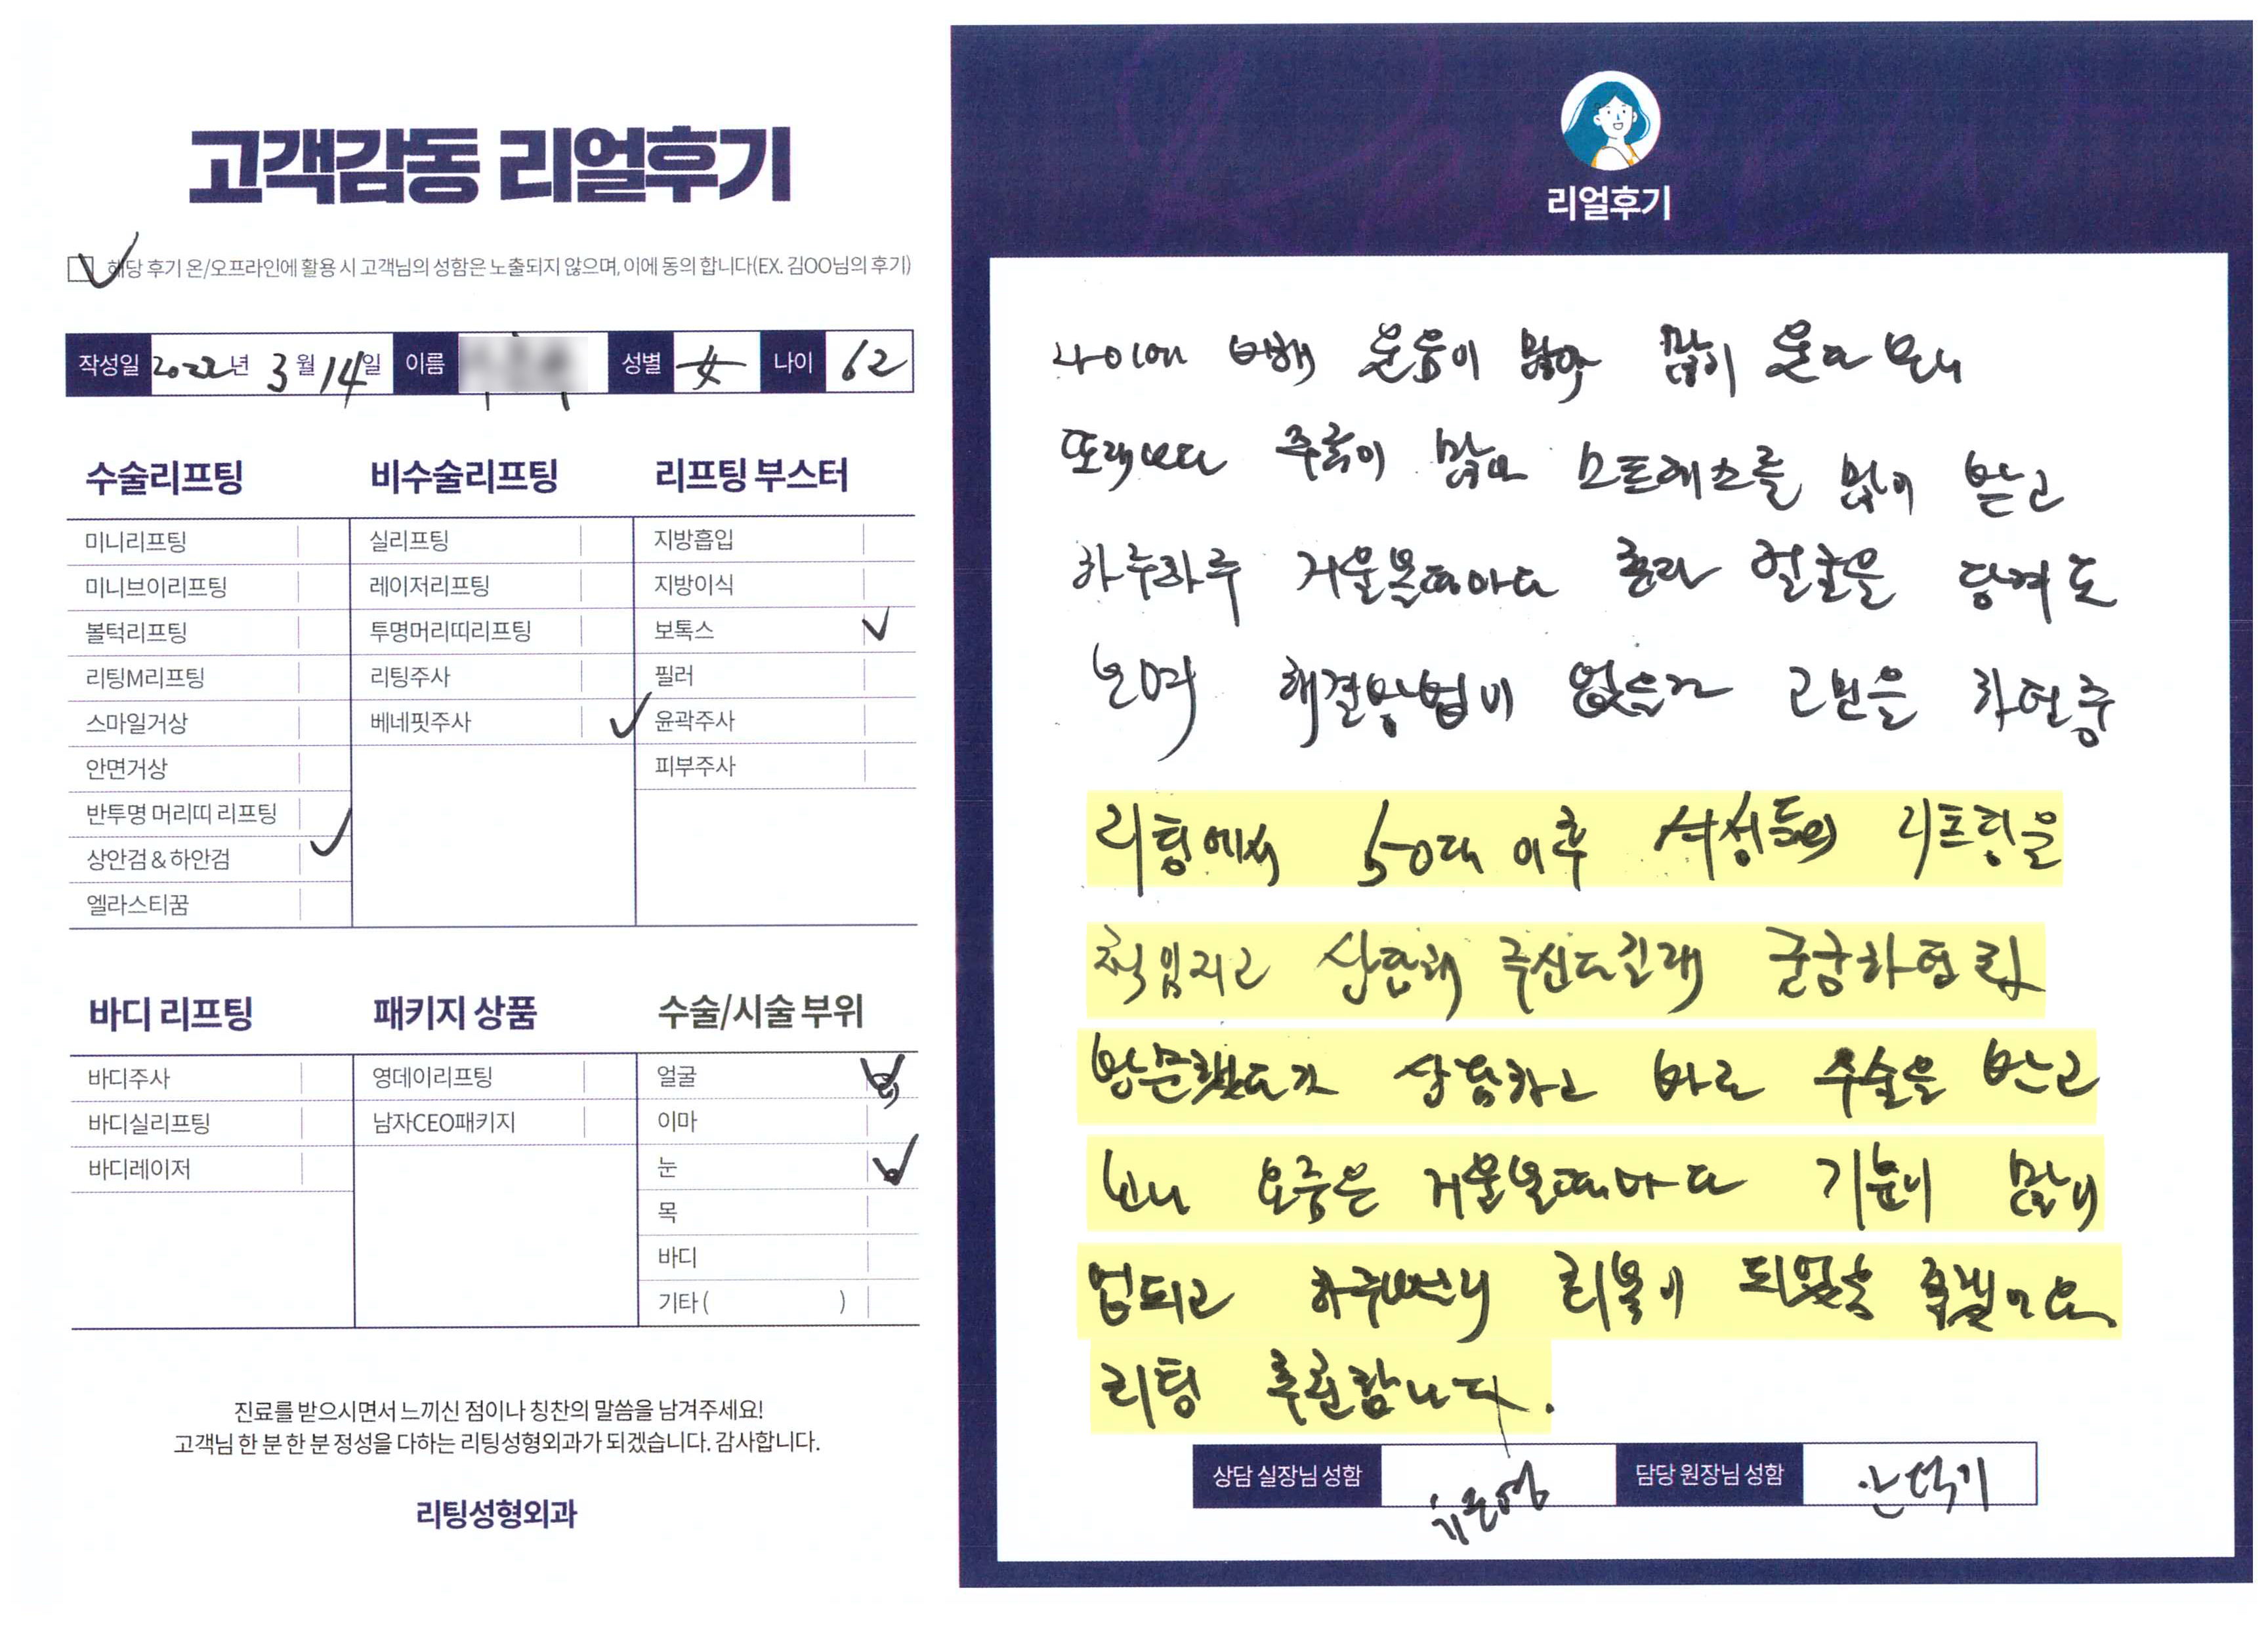 고객감동 리얼후기
해당 후기 온/오프라인에 활용 시 고객님의 성함은 노출되지 않으며, 이에 동의 합니다(EX. 김OO님의 후기)
작성일 2022년 3월 14일 이름 성별 女 나이 62
수술리프팅 비수술리프팅 리프팅 부스터
미니리프팅 실리프팅 지방흡입
미니브이리프팅 레이저리프팅 지방이식
볼턱리프팅 투명머리띠리프팅 보톡스
리팅M리프팅 리팅주사 필러
스마일거상 베네핏주사 윤곽주사
안면거상 피부주사
반투명 머리띠 리프팅
상안검 & 하안검
엘라스티꿈
바디 리프팅 패키지 상품 수술/시술 부위
바디주사 영데이리프팅 얼굴
바디실리프팅 남자CEO패키지 이마
바디레이저 눈
목
바디
기타 ( )
진료를 받으시면서 느끼신 점이나 칭찬의 말씀을 남겨주세요!
고객님 한 분 한 분 정성을 다하는 리팅성형외과가 되겠습니다. 감사합니다.
리팅성형외과
리얼후기
나이에 비해 웃음이 많아 많이 웃다 보니
또래보다 주름이 많고 스트레스를 많이 받고
하루하루 거울볼때마다 얼굴을 당겨도
보며 해결방법이 없을까 고민을 하던중
리팅에서 50대 이후 여성들의 리프팅을
책임지고 상담해 주신다길래 궁금하던차
방문했다가 상담하고 바로 수술을 받고
보니 요즘은 거울볼때마다 기분이 많이
업되고 하루빨리 회복이 되었음 좋겠어요
리팅 추천합니다.
상담 실장님 성함 담당 원장님 성함